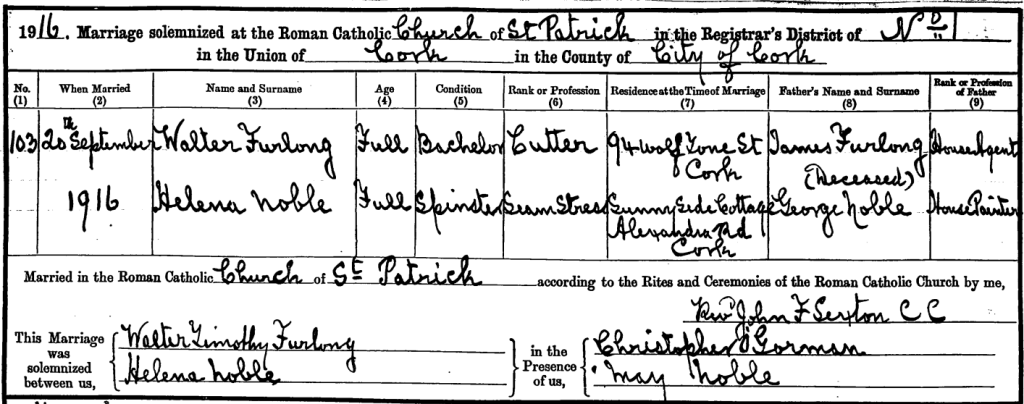 1916. Marriage solemnized at the Roman Catholic Church of St Patrick in the Registrar's District of No 1
in the Union of Cork in the County of City of Cork
No. (1) When Married (2) Name and Surname (3) Age (4) Condition (5) Rank or Profession (6) Residence at the Time of Marriage (7) Father's Name and Surname (8) Rank or Profession of Father (9)
103 20th September Walter Furlong Full Bachelor Cutter 94 Wolf Tone St Cork James Furlong (Deceased) House Agent
1916 Helena Noble Full Spinster Seamstress Sunny Side Cottage Alexandra Rd Cork George Noble House Painter
Married in the Roman Catholic Church of St Patrick according to the Rites and Ceremonies of the Roman Catholic Church by me,
Revd John F Sexton C C
This Marriage was solemnized between us, Walter Timothy Furlong in the Presence of us, Christopher O'Gorman
Helena Noble May Noble